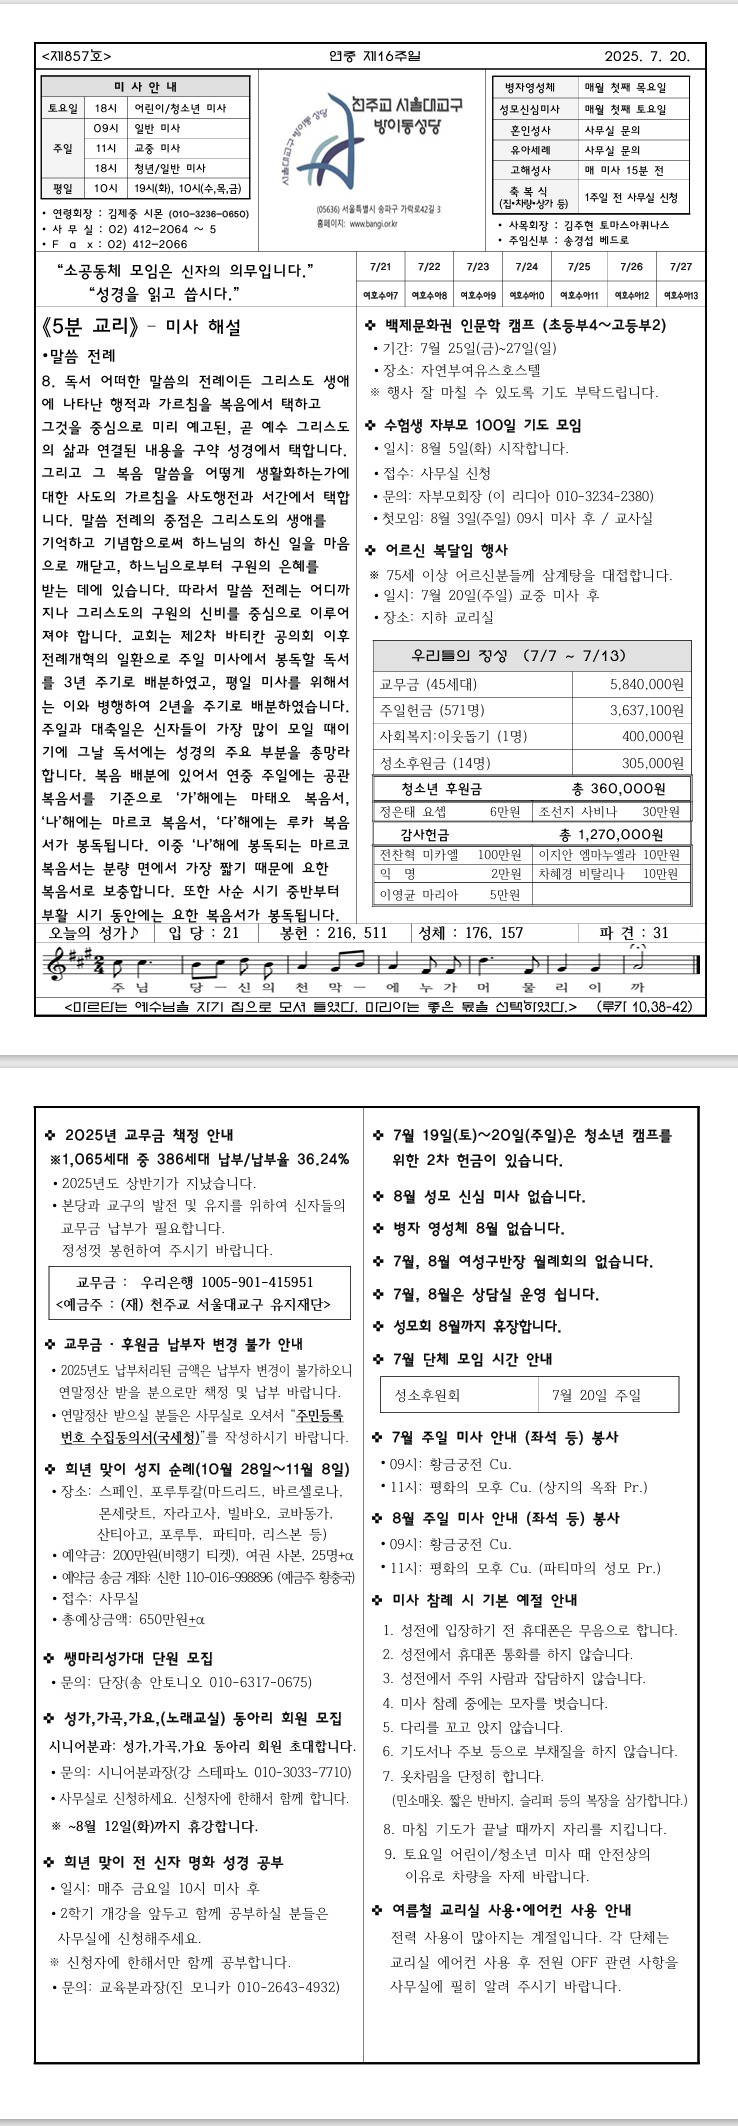 <제857호>
연중 제16주일
2025. 7. 20.
미 사 안 내
토요일 18시 어린이/청소년 미사
주일 09시 일반 미사
11시 교중 미사
18시 청년/일반 미사
평일 10시 19시(화), 10시(수,목,금)
• 연령회장 : 김제중 시몬 (010-3236-0650)
• 사 무 실 : 02) 412-2064 ~ 5
• F a x : 02) 412-2066
서울대교구 방이동성당
천주교 서울대교구
방이동성당
(05636) 서울특별시 송파구 가락로42길 3
홈페이지: www.bangi.or.kr
병자영성체 매월 첫째 목요일
성모신심미사 매월 첫째 토요일
혼인성사 사무실 문의
유아세례 사무실 문의
고해성사 매 미사 15분 전
축 복 식
(집•차량•상가 등) 1주일 전 사무실 신청
• 사목회장 : 김주현 토마스아퀴나스
• 주임신부 : 송경섭 베드로
“소공동체 모임은 신자의 의무입니다.”
“성경을 읽고 씁시다.”
7/21 7/22 7/23 7/24 7/25 7/26 7/27
여호수아7 여호수아8 여호수아9 여호수아10 여호수아11 여호수아12 여호수아13
《5분 교리》 - 미사 해설
•말씀 전례
8. 독서 어떠한 말씀의 전례이든 그리스도 생애
에 나타난 행적과 가르침을 복음에서 택하고
그것을 중심으로 미리 예고된, 곧 예수 그리스도
의 삶과 연결된 내용을 구약 성경에서 택합니다.
그리고 그 복음 말씀을 어떻게 생활화하는가에
대한 사도의 가르침을 사도행전과 서간에서 택합
니다. 말씀 전례의 중점은 그리스도의 생애를
기억하고 기념함으로써 하느님의 하신 일을 마음
으로 깨닫고, 하느님으로부터 구원의 은혜를
받는 데에 있습니다. 따라서 말씀 전례는 어디까
지나 그리스도의 구원의 신비를 중심으로 이루어
져야 합니다. 교회는 제2차 바티칸 공의회 이후
전례개혁의 일환으로 주일 미사에서 봉독할 독서
를 3년 주기로 배분하였고, 평일 미사를 위해서
는 이와 병행하여 2년을 주기로 배분하였습니다.
주일과 대축일은 신자들이 가장 많이 모일 때이
기에 그날 독서에는 성경의 주요 부분을 총망라
합니다. 복음 배분에 있어서 연중 주일에는 공관
복음서를 기준으로 ‘가’해에는 마태오 복음서,
‘나’해에는 마르코 복음서, ‘다’해에는 루카 복음
서가 봉독됩니다. 이중 ‘나’해에 봉독되는 마르코
복음서는 분량 면에서 가장 짧기 때문에 요한
복음서로 보충합니다. 또한 사순 시기 중반부터
부활 시기 동안에는 요한 복음서가 봉독됩니다.
❖ 백제문화권 인문학 캠프 (초등부4~고등부2)
• 기간: 7월 25일(금)~27일(일)
• 장소: 자연부여유스호스텔
※ 행사 잘 마칠 수 있도록 기도 부탁드립니다.
❖ 수험생 자부모 100일 기도 모임
• 일시: 8월 5일(화) 시작합니다.
• 접수: 사무실 신청
• 문의: 자부모회장 (이 리디아 010-3234-2380)
• 첫모임: 8월 3일(주일) 09시 미사 후 / 교사실
❖ 어르신 복달임 행사
※ 75세 이상 어르신분들께 삼계탕을 대접합니다.
• 일시: 7월 20일(주일) 교중 미사 후
• 장소: 지하 교리실
우리들의 정성 (7/7 ~ 7/13)
교무금 (45세대) 5,840,000원
주일헌금 (571명) 3,637,100원
사회복지:이웃돕기 (1명) 400,000원
성소후원금 (14명) 305,000원
청소년 후원금 총 360,000원
정은태 요셉 6만원 조선지 사비나 30만원
감사헌금 총 1,270,000원
전찬혁 미카엘 100만원 이지안 엠마누엘라 10만원
익 명 2만원 차혜경 비탈리나 10만원
이영균 마리아 5만원
오늘의 성가♪ 입 당 : 21 봉헌 : 216, 511 성체 : 176, 157 파 견 : 31
주 님 당 — 신 의 천 막 — 에 누 가 머 물 리 이 까
<마르타는 예수님을 자기 집으로 모셔 들였다. 마리아는 좋은 몫을 선택하였다.> (루카 10,38-42)
❖ 2025년 교무금 책정 안내
※1,065세대 중 386세대 납부/납부율 36.24%
• 2025년도 상반기가 지났습니다.
• 본당과 교구의 발전 및 유지를 위하여 신자들의
교무금 납부가 필요합니다.
정성껏 봉헌하여 주시기 바랍니다.
교무금 : 우리은행 1005-901-415951
<예금주 : (재) 천주교 서울대교구 유지재단>
❖ 교무금 · 후원금 납부자 변경 불가 안내
• 2025년도 납부처리된 금액은 납부자 변경이 불가하오니
연말정산 받을 분으로만 책정 및 납부 바랍니다.
• 연말정산 받으실 분들은 사무실로 오셔서 “주민등록
번호 수집동의서(국세청)”를 작성하시기 바랍니다.
❖ 희년 맞이 성지 순례(10월 28일~11월 8일)
• 장소: 스페인, 포루투칼(마드리드, 바르셀로나,
몬세랏트, 자라고사, 빌바오, 코바동가,
산티아고, 포루투, 파티마, 리스본 등)
• 예약금: 200만원(비행기 티켓), 여권 사본, 25명+α
• 예약금 송금 계좌: 신한 110-016-998896 (예금주 황충국)
• 접수: 사무실
• 총예상금액: 650만원±α
❖ 쌩마리성가대 단원 모집
• 문의: 단장(송 안토니오 010-6317-0675)
❖ 성가,가곡,가요,(노래교실) 동아리 회원 모집
시니어분과: 성가,가곡,가요 동아리 회원 초대합니다.
• 문의: 시니어분과장(강 스테파노 010-3033-7710)
• 사무실로 신청하세요. 신청자에 한해서 함께 합니다.
※ ~8월 12일(화)까지 휴강합니다.
❖ 희년 맞이 전 신자 명화 성경 공부
• 일시: 매주 금요일 10시 미사 후
• 2학기 개강을 앞두고 함께 공부하실 분들은
사무실에 신청해주세요.
※ 신청자에 한해서만 함께 공부합니다.
• 문의: 교육분과장(진 모니카 010-2643-4932)
❖ 7월 19일(토)~20일(주일)은 청소년 캠프를
위한 2차 헌금이 있습니다.
❖ 8월 성모 신심 미사 없습니다.
❖ 병자 영성체 8월 없습니다.
❖ 7월, 8월 여성구반장 월례회의 없습니다.
❖ 7월, 8월은 상담실 운영 쉽니다.
❖ 성모회 8월까지 휴장합니다.
❖ 7월 단체 모임 시간 안내
성소후원회 7월 20일 주일
❖ 7월 주일 미사 안내 (좌석 등) 봉사
• 09시: 황금궁전 Cu.
• 11시: 평화의 모후 Cu. (상지의 옥좌 Pr.)
❖ 8월 주일 미사 안내 (좌석 등) 봉사
• 09시: 황금궁전 Cu.
• 11시: 평화의 모후 Cu. (파티마의 성모 Pr.)
❖ 미사 참례 시 기본 예절 안내
1. 성전에 입장하기 전 휴대폰은 무음으로 합니다.
2. 성전에서 휴대폰 통화를 하지 않습니다.
3. 성전에서 주위 사람과 잡담하지 않습니다.
4. 미사 참례 중에는 모자를 벗습니다.
5. 다리를 꼬고 앉지 않습니다.
6. 기도서나 주보 등으로 부채질을 하지 않습니다.
7. 옷차림을 단정히 합니다.
(민소매옷. 짧은 반바지, 슬리퍼 등의 복장을 삼가합니다.)
8. 마침 기도가 끝날 때까지 자리를 지킵니다.
9. 토요일 어린이/청소년 미사 때 안전상의
이유로 차량을 자제 바랍니다.
❖ 여름철 교리실 사용•에어컨 사용 안내
전력 사용이 많아지는 계절입니다. 각 단체는
교리실 에어컨 사용 후 전원 OFF 관련 사항을
사무실에 필히 알려 주시기 바랍니다.